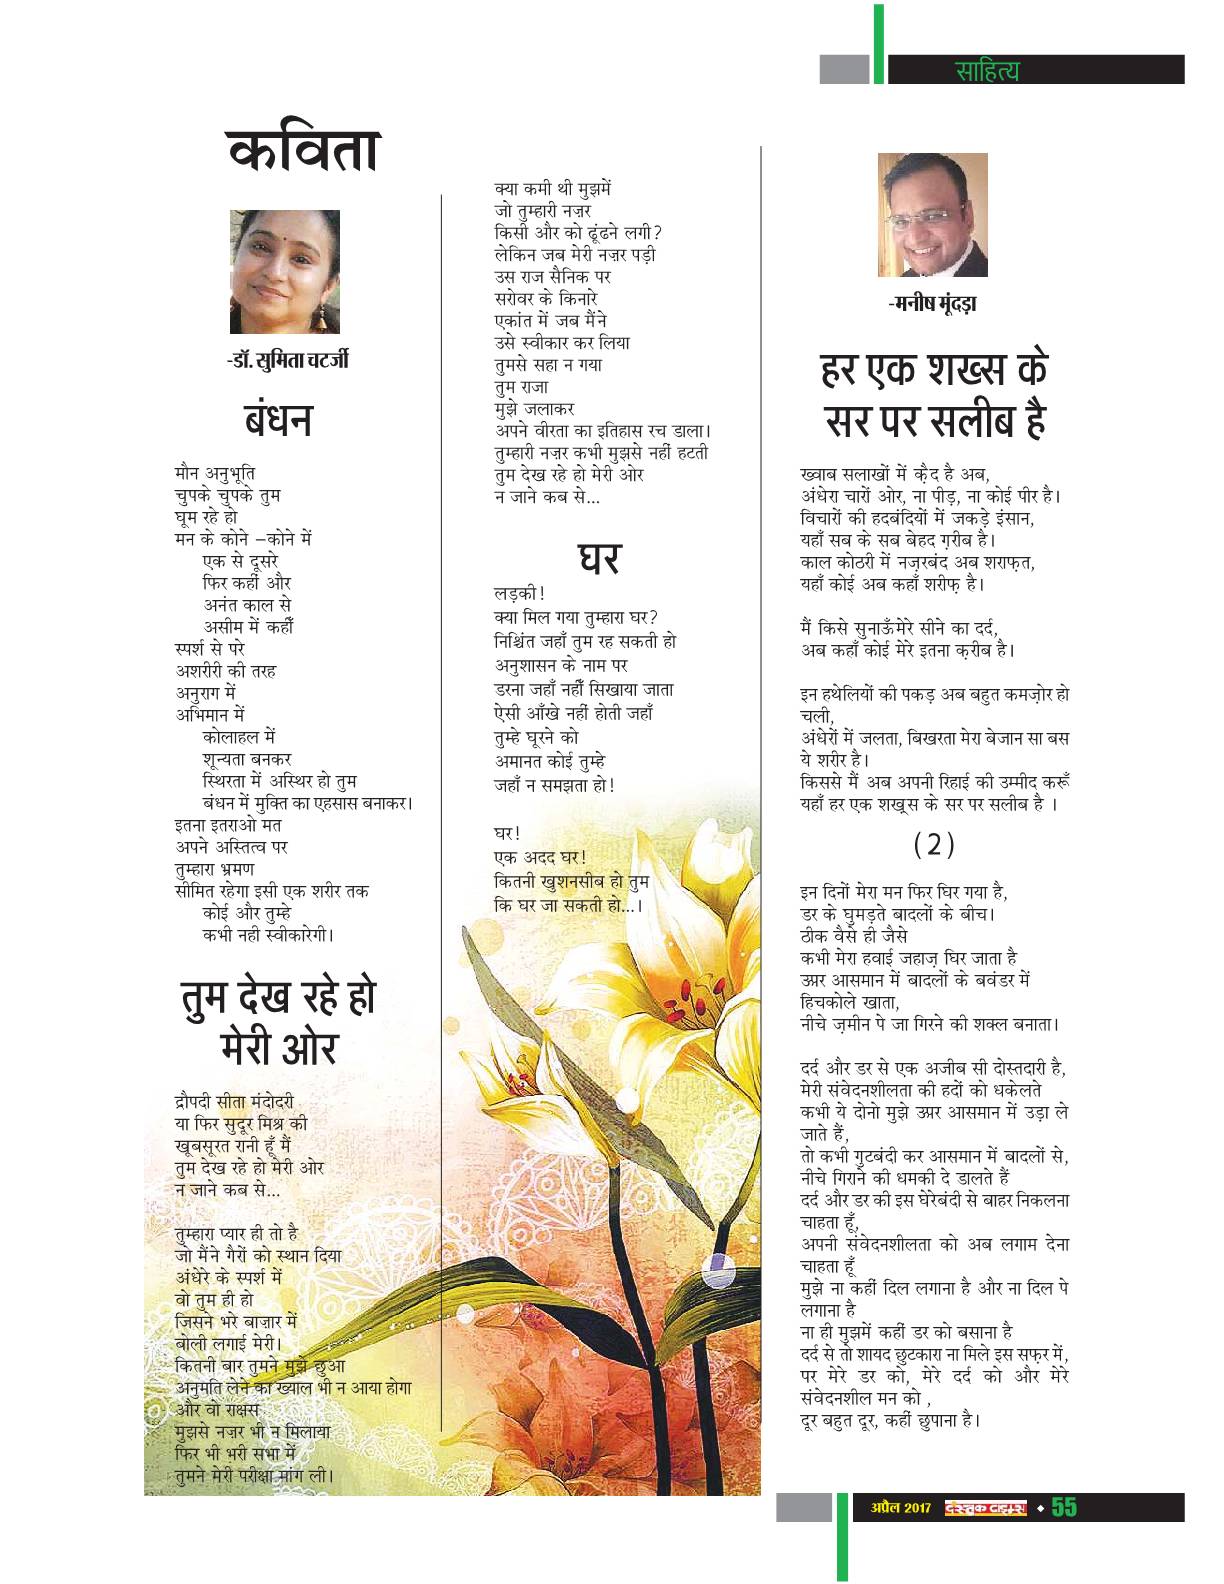 साहित्य
कविता
-डॉ. सुमिता चटर्जी
बंधन
मौन अनुभूति
चुपके चुपके तुम
घूम रहे हो
मन के कोने –कोने में
एक से दूसरे
फिर कहीं और
अनंत काल से
असीम में कहीँ
स्पर्श से परे
अशरीरी की तरह
अनुराग में
अभिमान में
कोलाहल में
शून्यता बनकर
स्थिरता में अस्थिर हो तुम
बंधन में मुक्ति का एहसास बनाकर।
इतना इतराओ मत
अपने अस्तित्व पर
तुम्हारा भ्रमण
सीमित रहेगा इसी एक शरीर तक
कोई और तुम्हे
कभी नही स्वीकारेगी।
तुम देख रहे हो
मेरी ओर
द्रौपदी सीता मंदोदरी
या फिर सुदूर मिश्र की
खूबसूरत रानी हूँ मैं
तुम देख रहे हो मेरी ओर
न जाने कब से...
तुम्हारा प्यार ही तो है
जो मैंने गैरों को स्थान दिया
अंधेरे के स्पर्श में
वो तुम ही हो
जिसने भरे बाज़ार में
बोली लगाई मेरी।
कितनी बार तुमने मुझे छुआ
अनुमति लेने का ख्याल भी न आया होगा
और वो राक्षस
मुझसे नज़र भी न मिलाया
फिर भी भरी सभा में
तुमने मेरी परीक्षा मांग ली।
क्या कमी थी मुझमें
जो तुम्हारी नज़र
किसी और को ढूंढने लगी?
लेकिन जब मेरी नज़र पड़ी
उस राज सैनिक पर
सरोवर के किनारे
एकांत में जब मैंने
उसे स्वीकार कर लिया
तुमसे सहा न गया
तुम राजा
मुझे जलाकर
अपने वीरता का इतिहास रच डाला।
तुम्हारी नज़र कभी मुझसे नहीं हटती
तुम देख रहे हो मेरी ओर
न जाने कब से...
घर
लड़की!
क्या मिल गया तुम्हारा घर?
निश्चिंत जहाँ तुम रह सकती हो
अनुशासन के नाम पर
डरना जहाँ नहीँ सिखाया जाता
ऐसी आँखे नहीं होती जहाँ
तुम्हे घूरने को
अमानत कोई तुम्हे
जहाँ न समझता हो!
घर!
एक अदद घर!
कितनी खुशनसीब हो तुम
कि घर जा सकती हो...।
-मनीष मूंदड़ा
हर एक शख्स के
सर पर सलीब है
ख्वाब सलाखों में कै़द है अब,
अंधेरा चारों ओर, ना पीड़, ना कोई पीर है।
विचारों की हदबंदियों में जकड़े इंसान,
यहाँ सब के सब बेहद ग़रीब है।
काल कोठरी में नज़रबंद अब शराफ़त,
यहाँ कोई अब कहाँ शरीफ़ है।
मैं किसे सुनाऊँमेरे सीने का दर्द,
अब कहाँ कोई मेरे इतना क़रीब है।
इन हथेलियों की पकड़ अब बहुत कमज़ोर हो
चली,
अंधेरों में जलता, बिखरता मेरा बेजान सा बस
ये शरीर है।
किससे मैं अब अपनी रिहाई की उम्मीद करूँ
यहाँ हर एक शख़्स के सर पर सलीब है ।
(2)
इन दिनों मेरा मन फिर घिर गया है,
डर के घुमड़ते बादलों के बीच।
ठीक वैसे ही जैसे
कभी मेरा हवाई जहाज़ घिर जाता है
ऊपर आसमान में बादलों के बवंडर में
हिचकोले खाता,
नीचे ज़मीन पे जा गिरने की शक्ल बनाता।
दर्द और डर से एक अजीब सी दोस्तदारी है,
मेरी संवेदनशीलता की हदों को धकेलते
कभी ये दोनो मुझे ऊपर आसमान में उड़ा ले
जाते हैं,
तो कभी गुटबंदी कर आसमान में बादलों से,
नीचे गिराने की धमकी दे डालते हैं
दर्द और डर की इस घेरेबंदी से बाहर निकलना
चाहता हूँ,
अपनी संवेदनशीलता को अब लगाम देना
चाहता हूँ
मुझे ना कहीं दिल लगाना है और ना दिल पे
लगाना है
ना ही मुझमें कहीं डर को बसाना है
दर्द से तो शायद छुटकारा ना मिले इस सफ़र में,
पर मेरे डर को, मेरे दर्द को और मेरे
संवेदनशील मन को ,
दूर बहुत दूर, कहीं छुपाना है।
अप्रैल 2017 दस्तक टाइम्स ◆ 55